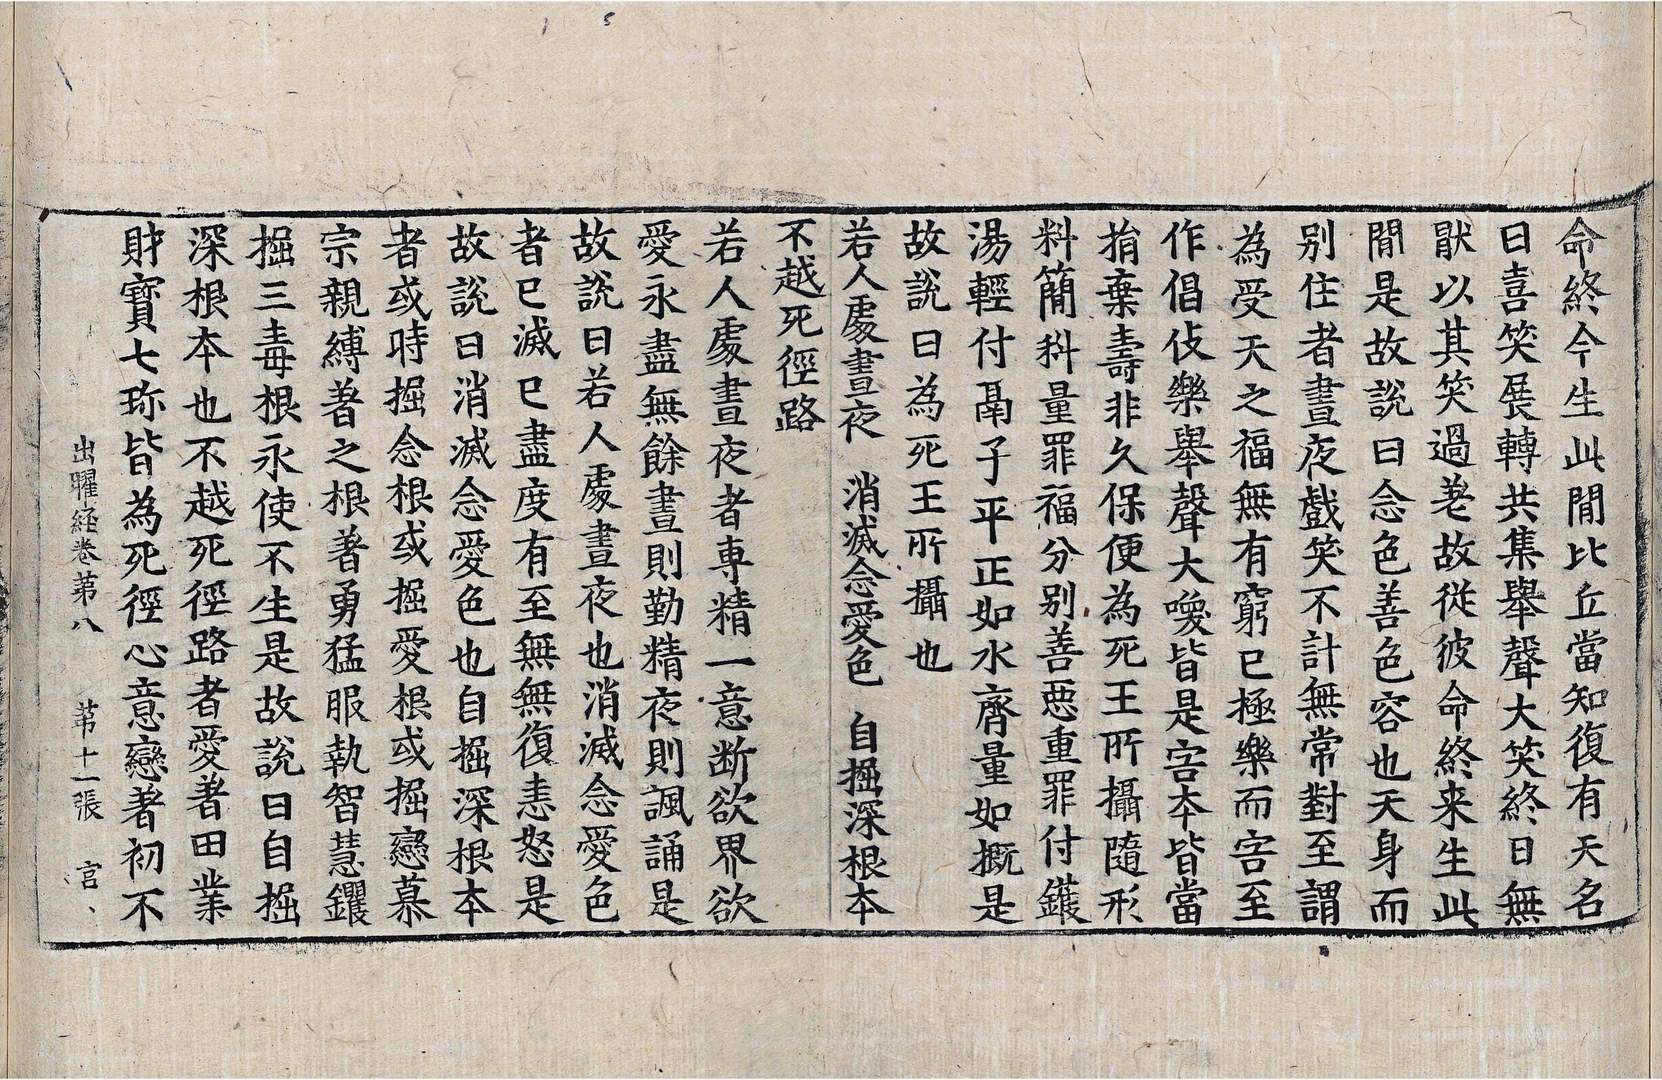 命終今生此閒比丘當知復有天名
曰喜笑展轉共集舉聲大笑終日無
猒以其笑過差故從彼命終来生此
閒是故說曰念色善色容也天身而
別住者晝夜戲笑不計無常對至謂
為受天之福無有窮已極樂而害至
作倡伎樂舉聲大喚皆是害本皆當
捐棄壽非久保便為死王所攝隨形
料簡科量罪福分別善惡重罪付鑊
湯輕付鬲子平正如水齊量如概是
故說曰為死王所攝也
若人處晝夜 消滅念愛色 自掘深根本
不越死徑路
若人處晝夜者專精一意断欲界欲
愛永盡無餘晝則勤精夜則諷誦是
故說曰若人處晝夜也消滅念愛色
者已滅已盡度有至無無復恚怒是
故說曰消滅念愛色也自掘深根本
者或時掘念根或掘愛根或掘戀慕
宗親縛著之根著勇猛服執智慧钁
掘三毒根永使不生是故說曰自掘
深根本也不越死徑路者愛著田業
財寶七珎皆為死徑心意戀著初不
出曜経卷第八 第十一張 宮